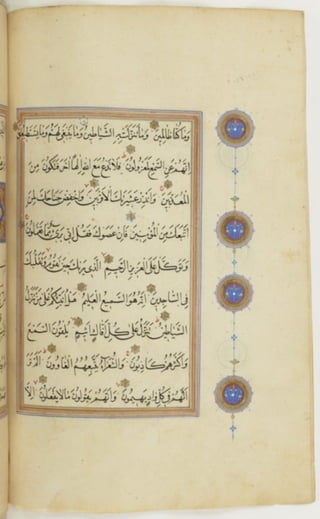 وَمَا كُنَّا ظَالِمِينَ وَمَا تَنَزَّلَتْ بِهِ الشَّيَاطِينُ وَمَا يَنْبَغِي لَهُمْ وَمَا يَسْتَطِيعُونَ
إِنَّهُمْ عَنِ السَّمْعِ لَمَعْزُولُونَ فَلَا تَدْعُ مَعَ اللَّهِ إِلَهًا آخَرَ فَتَكُونَ مِنَ
الْمُعَذَّبِينَ وَأَنْذِرْ عَشِيرَتَكَ الْأَقْرَبِينَ وَاخْفِضْ جَنَاحَكَ لِمَنِ
اتَّبَعَكَ مِنَ الْمُؤْمِنِينَ فَإِنْ عَصَوْكَ فَقُلْ إِنِّي بَرِيءٌ مِمَّا تَعْمَلُونَ
وَتَوَكَّلْ عَلَى الْعَزِيزِ الرَّحِيمِ الَّذِي يَرَاكَ حِينَ تَقُومُ وَتَقَلُّبَكَ
فِي السَّاجِدِينَ إِنَّهُ هُوَ السَّمِيعُ الْعَلِيمُ هَلْ أُنَبِّئُكُمْ عَلَى مَنْ تَنَزَّلُ
الشَّيَاطِينُ تَنَزَّلُ عَلَى كُلِّ أَفَّاكٍ أَثِيمٍ يُلْقُونَ السَّمْعَ
وَأَكْثَرُهُمْ كَاذِبُونَ وَالشُّعَرَاءُ يَتَّبِعُهُمُ الْغَاوُونَ أَلَمْ تَرَ
أَنَّهُمْ فِي كُلِّ وَادٍ يَهِيمُونَ وَأَنَّهُمْ يَقُولُونَ مَا لَا يَفْعَلُونَ إِلَّا